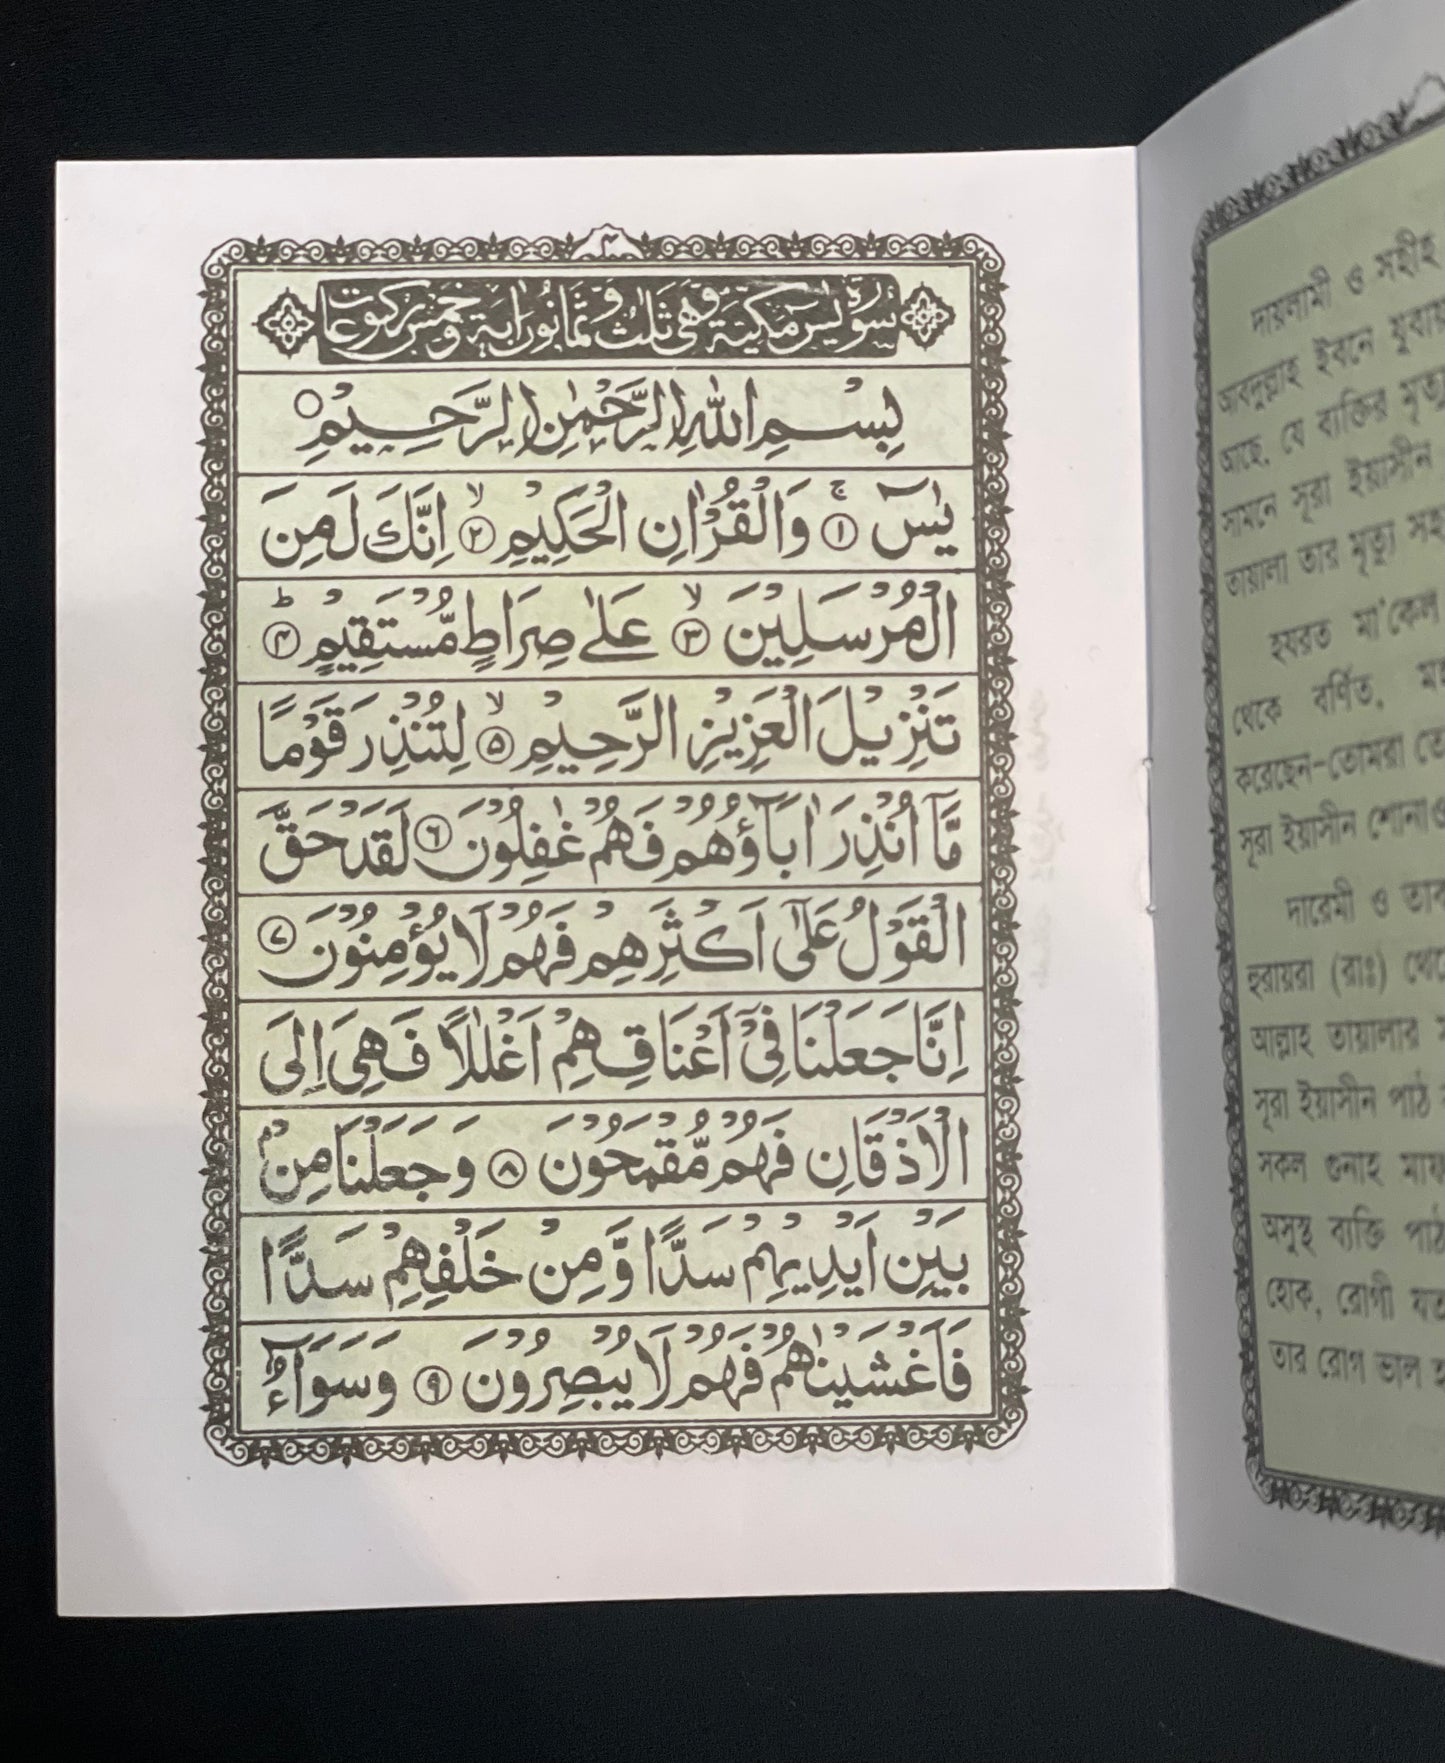 ٣
سُوْرَةُ يٰسٓ مَكِّيَّةٌ وَّهِيَ ثَلٰثٌ وَّثَمَانُوْنَ اٰيَةً وَّخَمْسُ رُكُوْعَاتٍ
بِسْمِ اللّٰهِ الرَّحْمٰنِ الرَّحِيْمِ ○
يٰسٓ ۚ ﴿١﴾ وَالْقُرْاٰنِ الْحَكِيْمِ ۙ ﴿٢﴾ اِنَّكَ لَمِنَ
الْمُرْسَلِيْنَ ۙ ﴿٣﴾ عَلٰى صِرَاطٍ مُّسْتَقِيْمٍ ؕ ﴿۴﴾
تَنْزِيْلَ الْعَزِيْزِ الرَّحِيْمِ ۙ ﴿۵﴾ لِتُنْذِرَ قَوْمًا
مَّاۤ اُنْذِرَ اٰبَآؤُهُمْ فَهُمْ غٰفِلُوْنَ ﴿۶﴾ لَقَدْ حَقَّ
الْقَوْلُ عَلٰۤى اَكْثَرِهِمْ فَهُمْ لَا يُؤْمِنُوْنَ ﴿۷﴾
اِنَّا جَعَلْنَا فِيْۤ اَعْنَاقِهِمْ اَغْلٰلًا فَهِيَ اِلَى
الْاَذْقَانِ فَهُمْ مُّقْمَحُوْنَ ﴿۸﴾ وَجَعَلْنَا مِنْۢ
بَيْنِ اَيْدِيْهِمْ سَدًّا وَّمِنْ خَلْفِهِمْ سَدًّا
فَاَغْشَيْنٰهُمْ فَهُمْ لَا يُبْصِرُوْنَ ﴿۹﴾ وَسَوَآءٌ
দায়লামী ও সহীহ
আবদুল্লাহ ইবনে যুবায়
আছে, যে ব্যক্তির মৃত্যু
সামনে সূরা ইয়াসীন
তায়ালা তার মৃত্যু সহ
হযরত মা'কেল
থেকে বর্ণিত,
করেছেন-তোমরা তো
সূরা ইয়াসীন শোনাও
দারেমী ও তাব
হুরায়রা (রাঃ) থেকে
আল্লাহ তায়ালার
সূরা ইয়াসীন পাঠ
সকল গুনাহ মাফ
অসুস্থ ব্যক্তি পাঠ
হোক, রোগী যত
তার রোগ ভাল হ